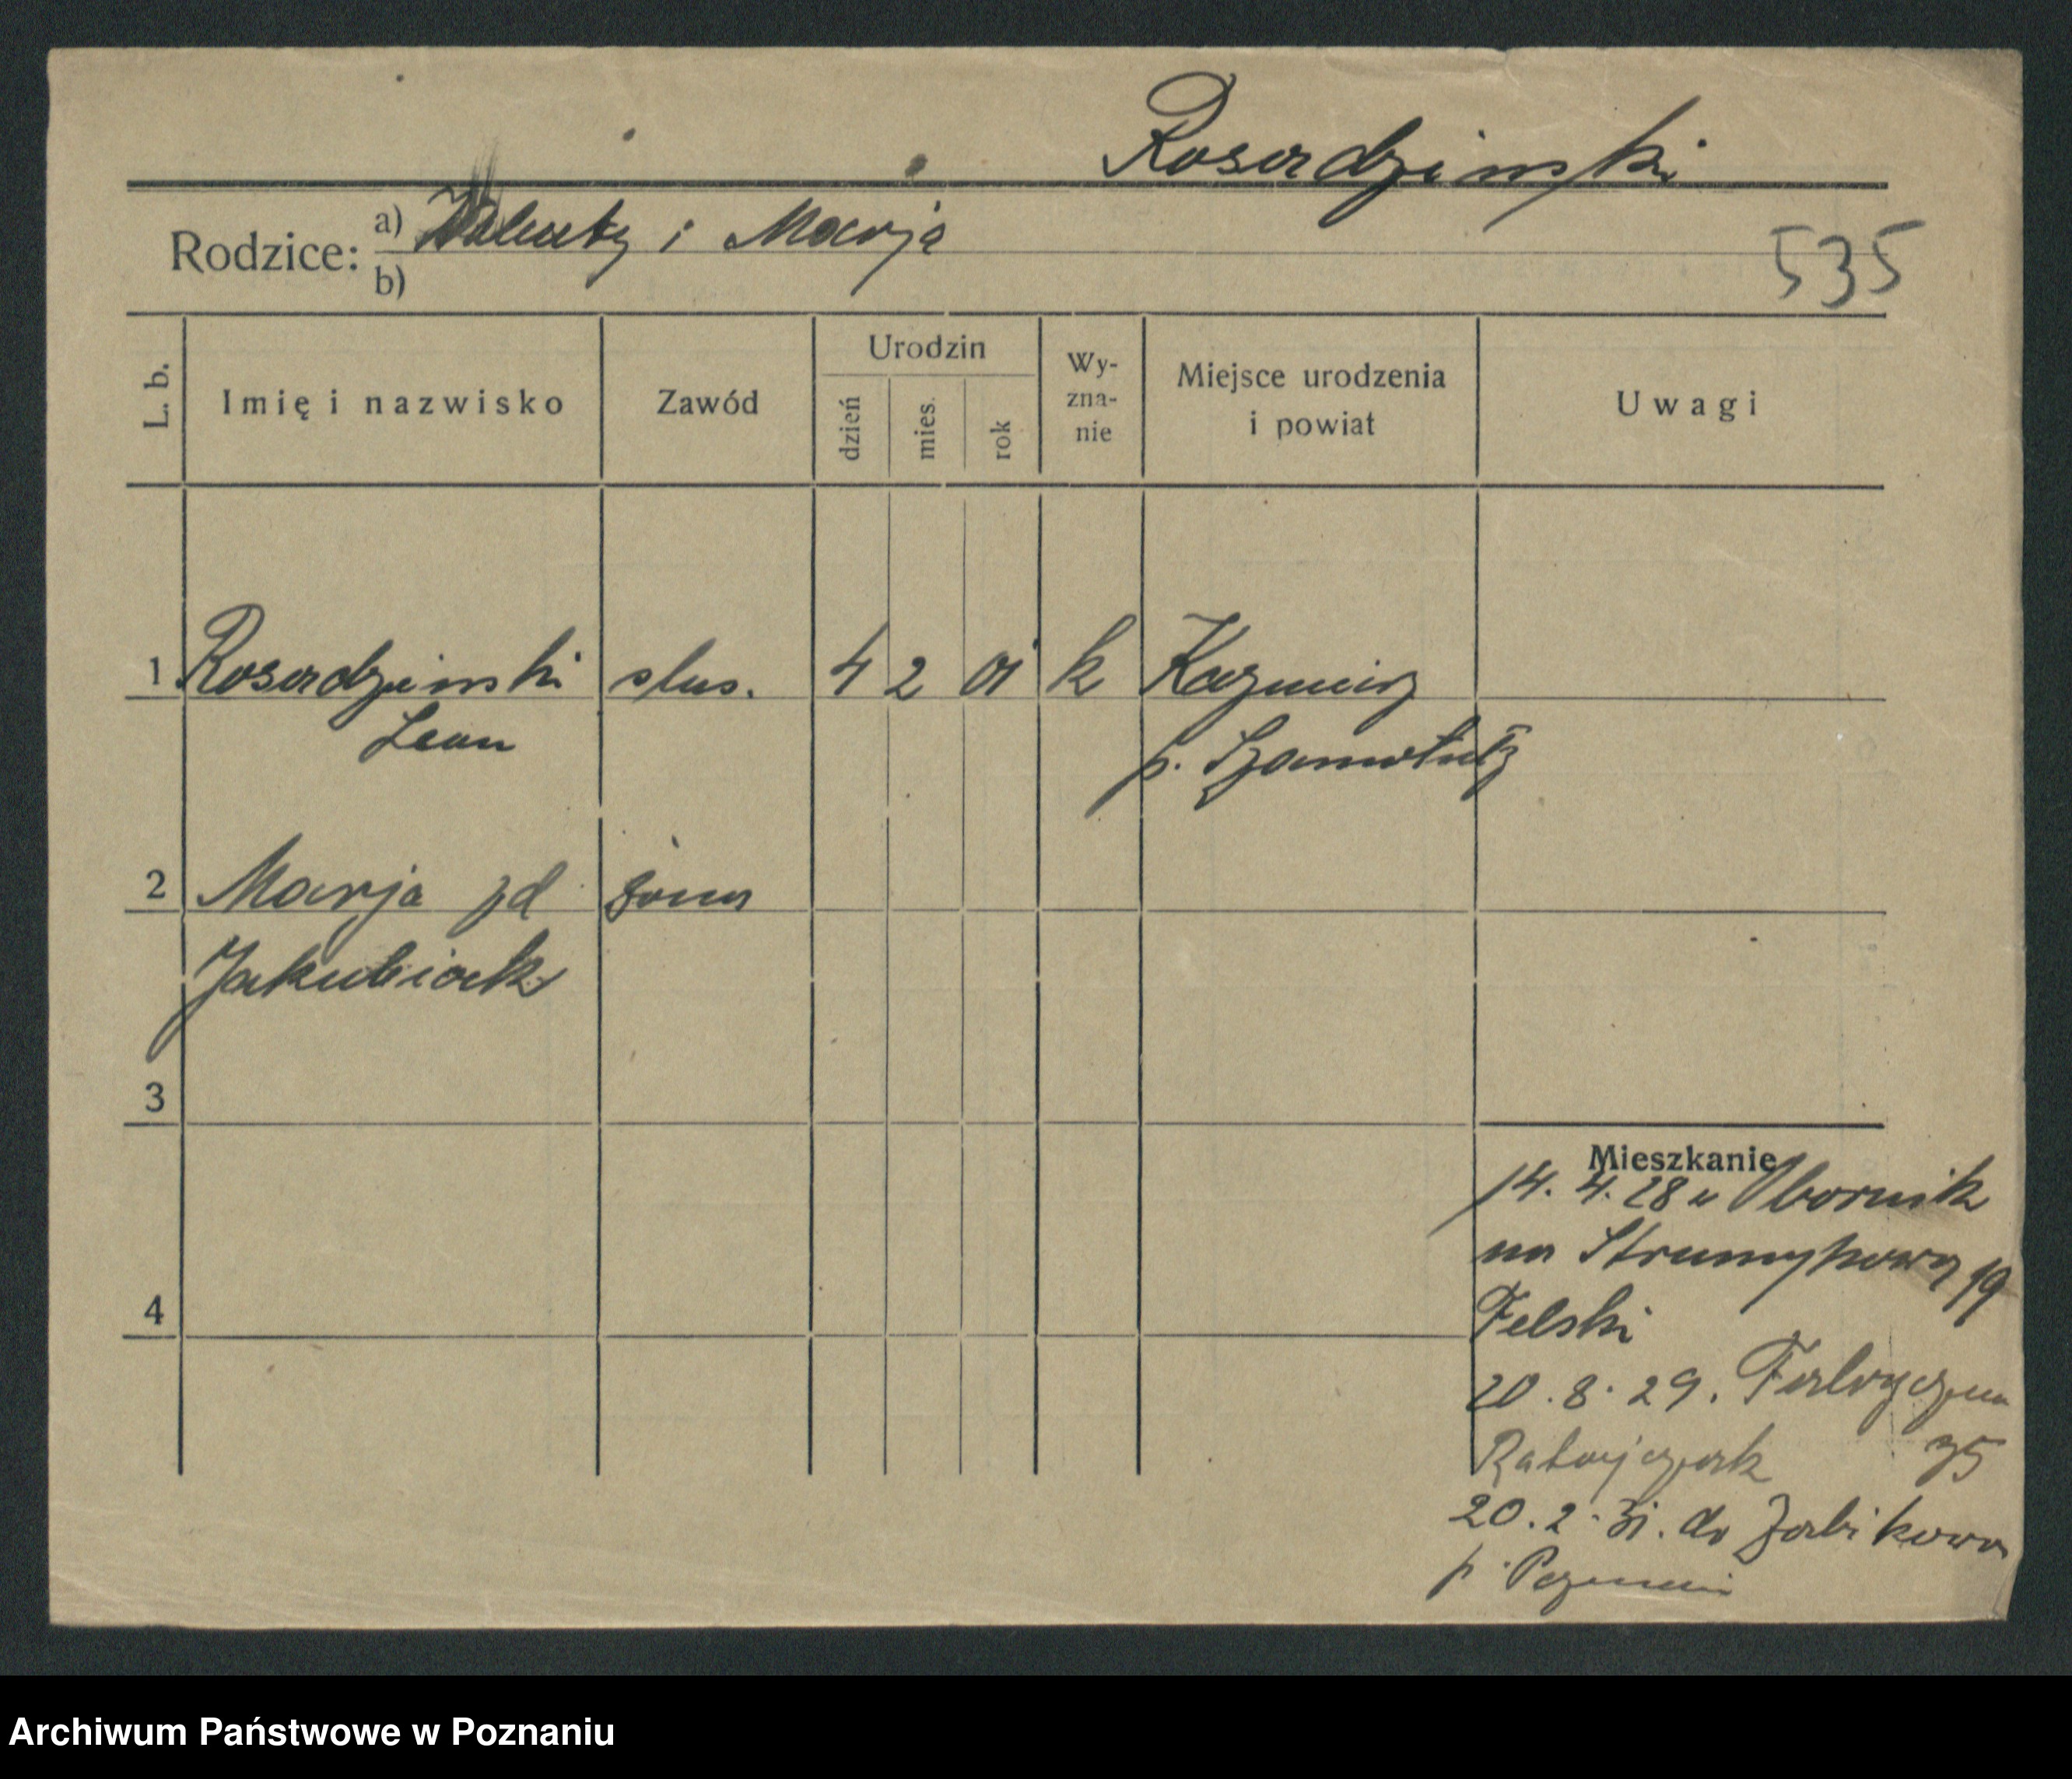 Rosadzinski
Rodzice: a) Walenty i Marja
b)
535
L. b. Imię i nazwisko Zawód Urodzin dzień mies. rok Wy-zna-nie Miejsce urodzenia i powiat Uwagi
1 Rosadzinski slus. 4 2 01 k Kazmierz
Leon p. Szamotuły
2 Marja zd żona
Jakubiak
3
Mieszkanie
14. 4. 28 z Obornik
na Strumykowa 19
4
Felski
20. 8. 29. Fabryczna
Ratajczak 35
20. 2. 31. do Żabikowa
p. Poznania
Archiwum Państwowe w Poznaniu